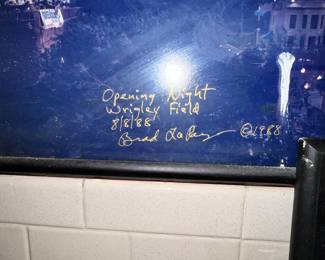 Opening Night
Wrigley Field
8/8/88
Brad ©1988